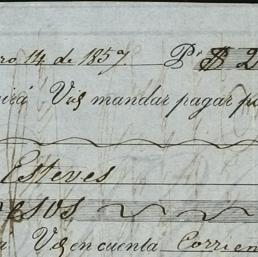 ro 14 de 1857 P.r $ 2
irá Vd mandar pagar po
Esteves
esos
Vd en cuenta Corrien